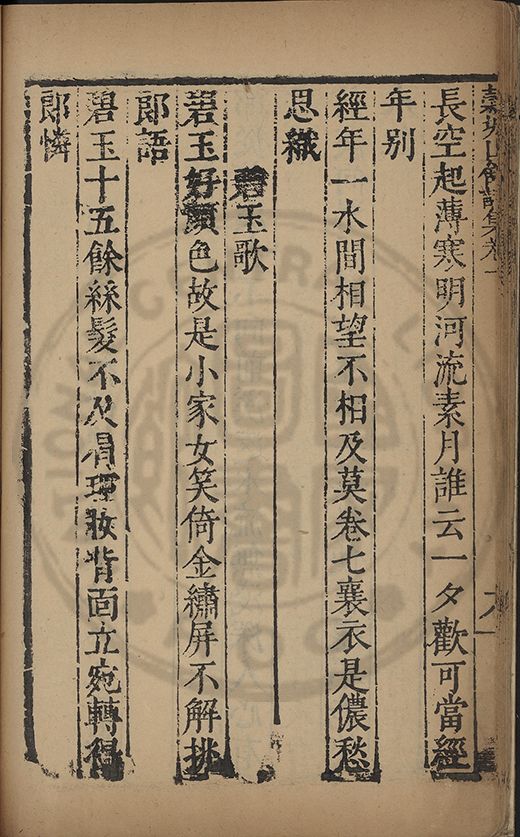 集卷一
長空起薄寒明河流素月誰云一夕歡可當經
年别
經年一水間相望不相及莫卷七襄衣是儂愁
思織
碧玉歌
碧玉好顏色故是小家女笑倚金繡屏不解挑
郎語
碧玉十五餘絲髮不及肩理妝背面立宛轉得
郎憐